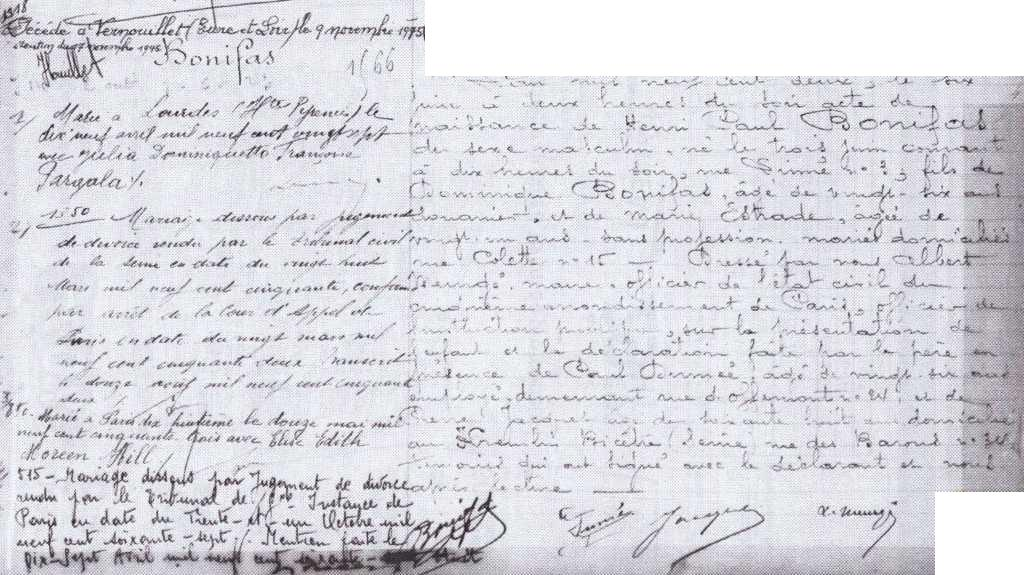 1918
Décédé à Vernouillet (Eure et Loir) le 9 novembre 1975
Mention du 17 novembre 1975
Bonifas
1566
1) Marié à Lourdes (Htes Pyrénées) le
dix neuf avril mil neuf cent vingt sept
avec Julia Dominiquetta Francoise
Pargala /.
2) 1350 Mariage dissous par jugement
de divorce rendu par le tribunal civil
de la Seine en date du vingt huit
Mars mil neuf cent cinquante, confirmé
par arrêt de la Cour d'Appel de
Paris en date du vingt mars mil
neuf cent cinquante deux Transcrit
le douze août mil neuf cent cinquante
deux
Marié à Paris dix huitième le douze mai mil
neuf cent cinquante trois avec Elise Edith
Noreen Hill
515 - Mariage dissous par Jugement de divorce
rendu par le Tribunal de Gde Instance de
Paris en date du Trente-et-un Octobre mil
neuf cent soixante-sept /. Mention faite le
Dix-Sept Avril mil neuf cent soixante-huit
L'an mil neuf cent deux, le six
juin à deux heures du soir acte de
naissance de Henri Paul Bonifas
du sexe masculin, né le trois juin courant
à dix heures du soir, rue Simné n° 3, fils de
Dominique Bonifas, âgé de vingt-six ans
douanier, et de Marie Estrade, âgée de
vingt-un ans - sans profession. mariés domiciliés
rue Colette n° 15 — Dressé par nous Albert
maire, officier de l'état civil du
arrondissement de Paris, officier de
l'instruction publique, sur la présentation de
l'enfant et la déclaration faite par le père en
présence de Paul âgé de vingt-six ans
employé, demeurant rue d'Ofsemont n° et de
âgé de soixante huit ans domicilié
au Kremlin Bicêtre (Seine) rue des Barons n°
témoins qui ont signé avec le déclarant et nous
après lecture —
Bonifas Jacques